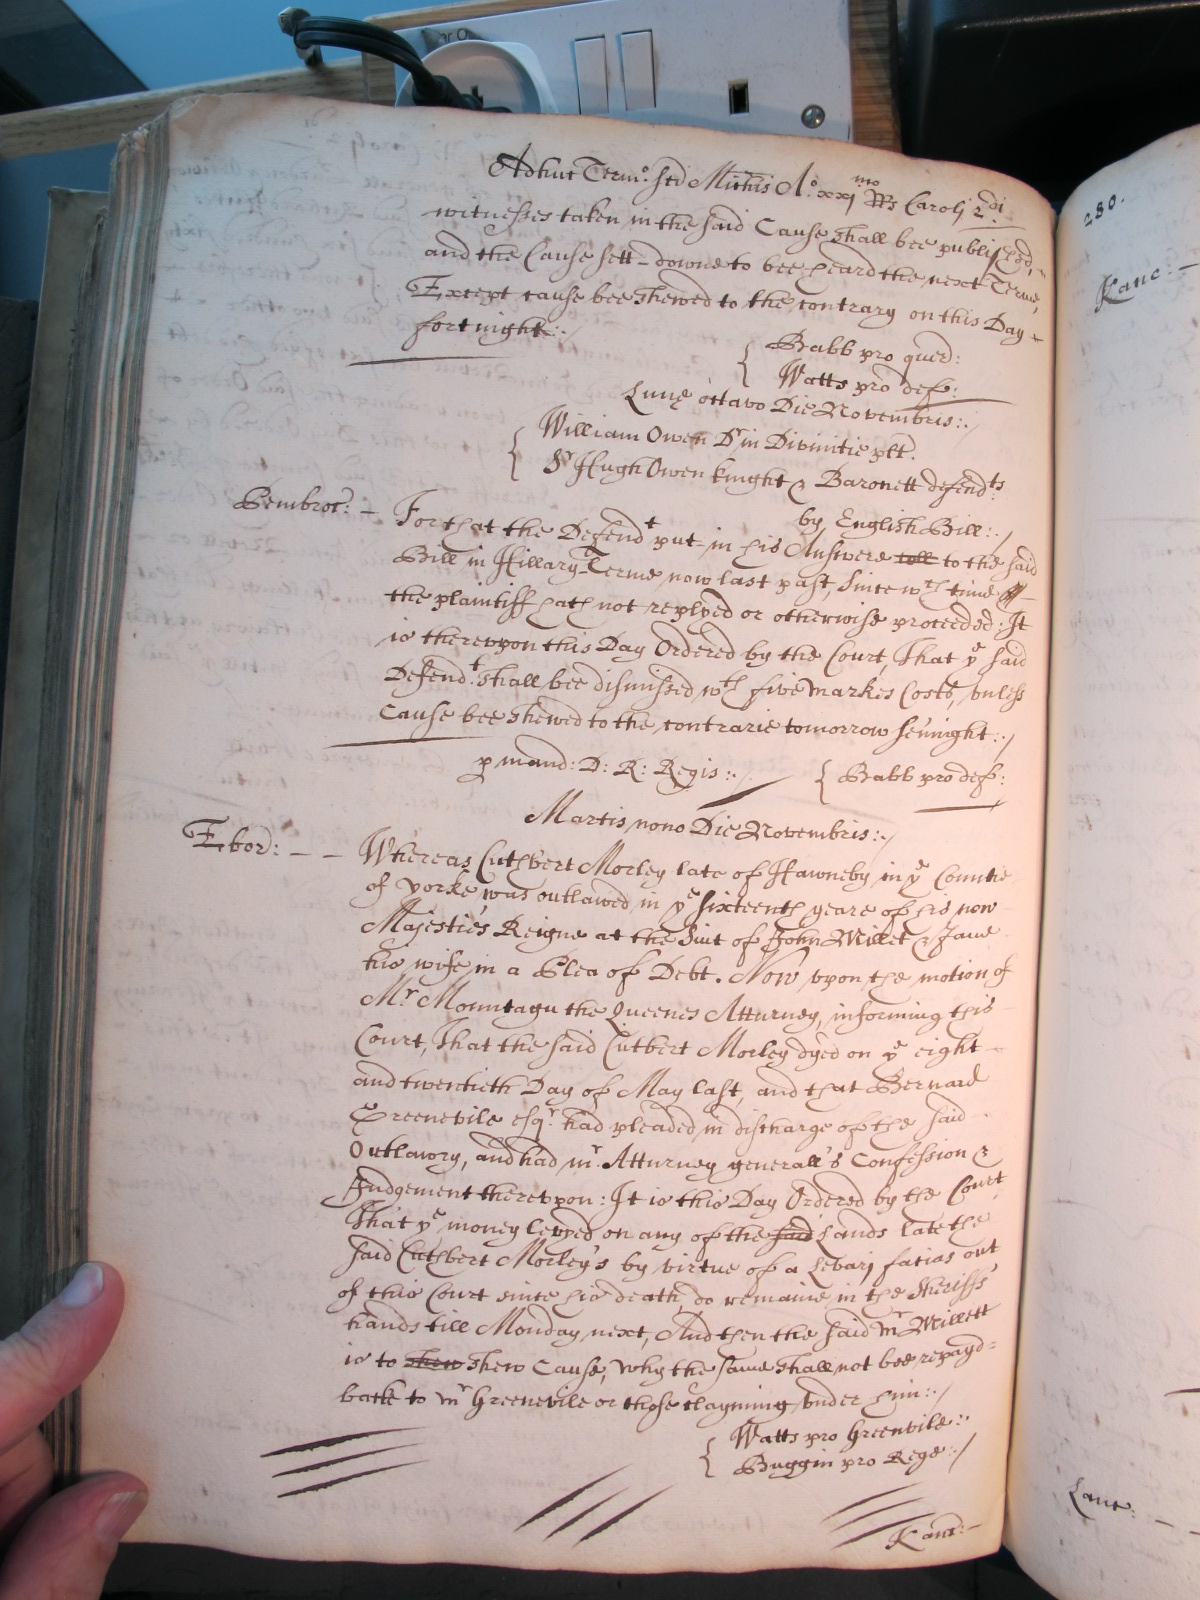 Adhuc Term:o Scd Michis A:o xxj mo Rs Caroli 2:di
witnesses taken in the said Cause shall bee published,
and the Cause sett-downe to bee heard the next Terme,
Except cause bee shewed to the contrary on this Day
fortnight:./
Babb pro quer:
Watts pro def:
Lunę octavo Die Novembris:./
William Owen Dr in Divinitie plt.
Sr Hugh Owen knight & Baronett defendts:
by English Bill:./
Pembroc: - For that the Defendt put in his Answere toll to the said
Bill in Hillary Terme now last past, Since wth time
the plaintiff hath not replyed or otherwise proceeded: It
is therevpon this Day Ordered by the Court, That ye said
Defendt: shall bee dismissed wth five markes Costs, vnless
Cause bee shewed to the contrarie tomorrow sennight:./
p mand: D: R: Regis:./
Babb pro def:
Martis nono Die Novembris:./
Ebor: - - Whereas Cuthbert Morley late of Hawneby in ye Countie
of Yorke was outlawed in ye Sixteenth yeare of his now
Majestie's Reigne at the Suit of John Millet & Jane
his wife in a Plea of Debt. Now vpon the motion of
Mr Mounntagu the Queenes Atturney, informing this
Court, That the said Cutbert Morley dyed on ye eight
and twentieth Day of May last, and that Bernard
Greenevile esqr: had pleaded in discharge of the said
Outlawry, and had mr. Atturney generall's Confession &
Judgement therevpon: It is this Day Ordered by the Court
That ye money levyed on any of the said Lands late the
said Cuthbert Morley's by virtue of a Levarj facias out
of this Court since his death, do remaine in the Sheriffs
hands till Monday next, And then the said Mr Millett
is to shew shew Cause, why the same shall not bee repayd=
back to mr Greenevile or those clayming vnder him:./
Watts pro Greenvile:.
Buggin pro Rege:./
Kanc:-
280.
Kanc:-
Lanc: - -